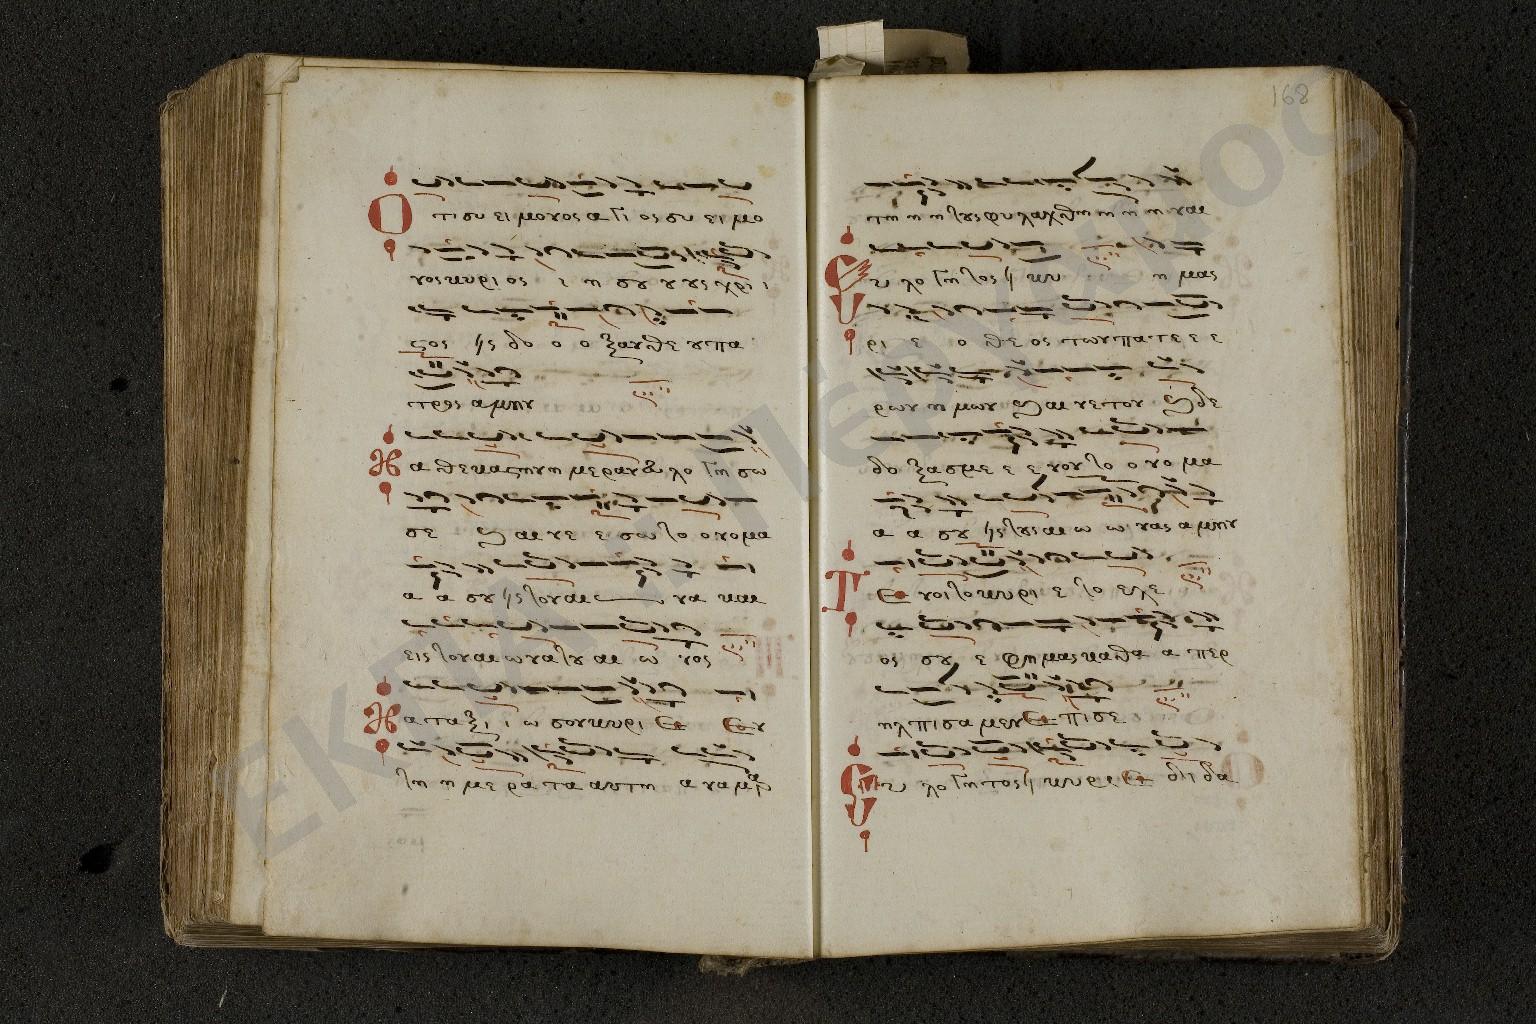 Ο τι συ ει μονος α γι ος συ ει μο
νος κυρι ος ι η σου ους χρι ι
στος εις δο ο ο ξαν θε ου πα
τρος αμην
Κ α θε καστην η μεραν ευ λο γη σω
σε και αι νε ε σω το ο νο μα
α α σου εις τον αι ω να και
εις τον αι ωνα του αι ω νος
Κ α τα ξι ι ω σον κυρι ε εν
τη η με ρα τα αυτη α να μαρ
168
τη η η τους φυ λαχ θη η η η ναι
Ε υ λο γη τος ει κυ
ρι ε ο θε ος των πα τε ε ε
ρων η μων και αι νε τον και δε
δο ξασμε ε ε νον το ο νο μα
α α σου εις τους αι ω ω νας αμην
Γ ε νοι το κυρι ε το ελε
ος σου ε φη μας καθα α περ
ηλπισα μεν ε πι σε
Ε υ λο γη τος ει κυρι ε δι δα
ΕΚΠΑ / Πέργαμος